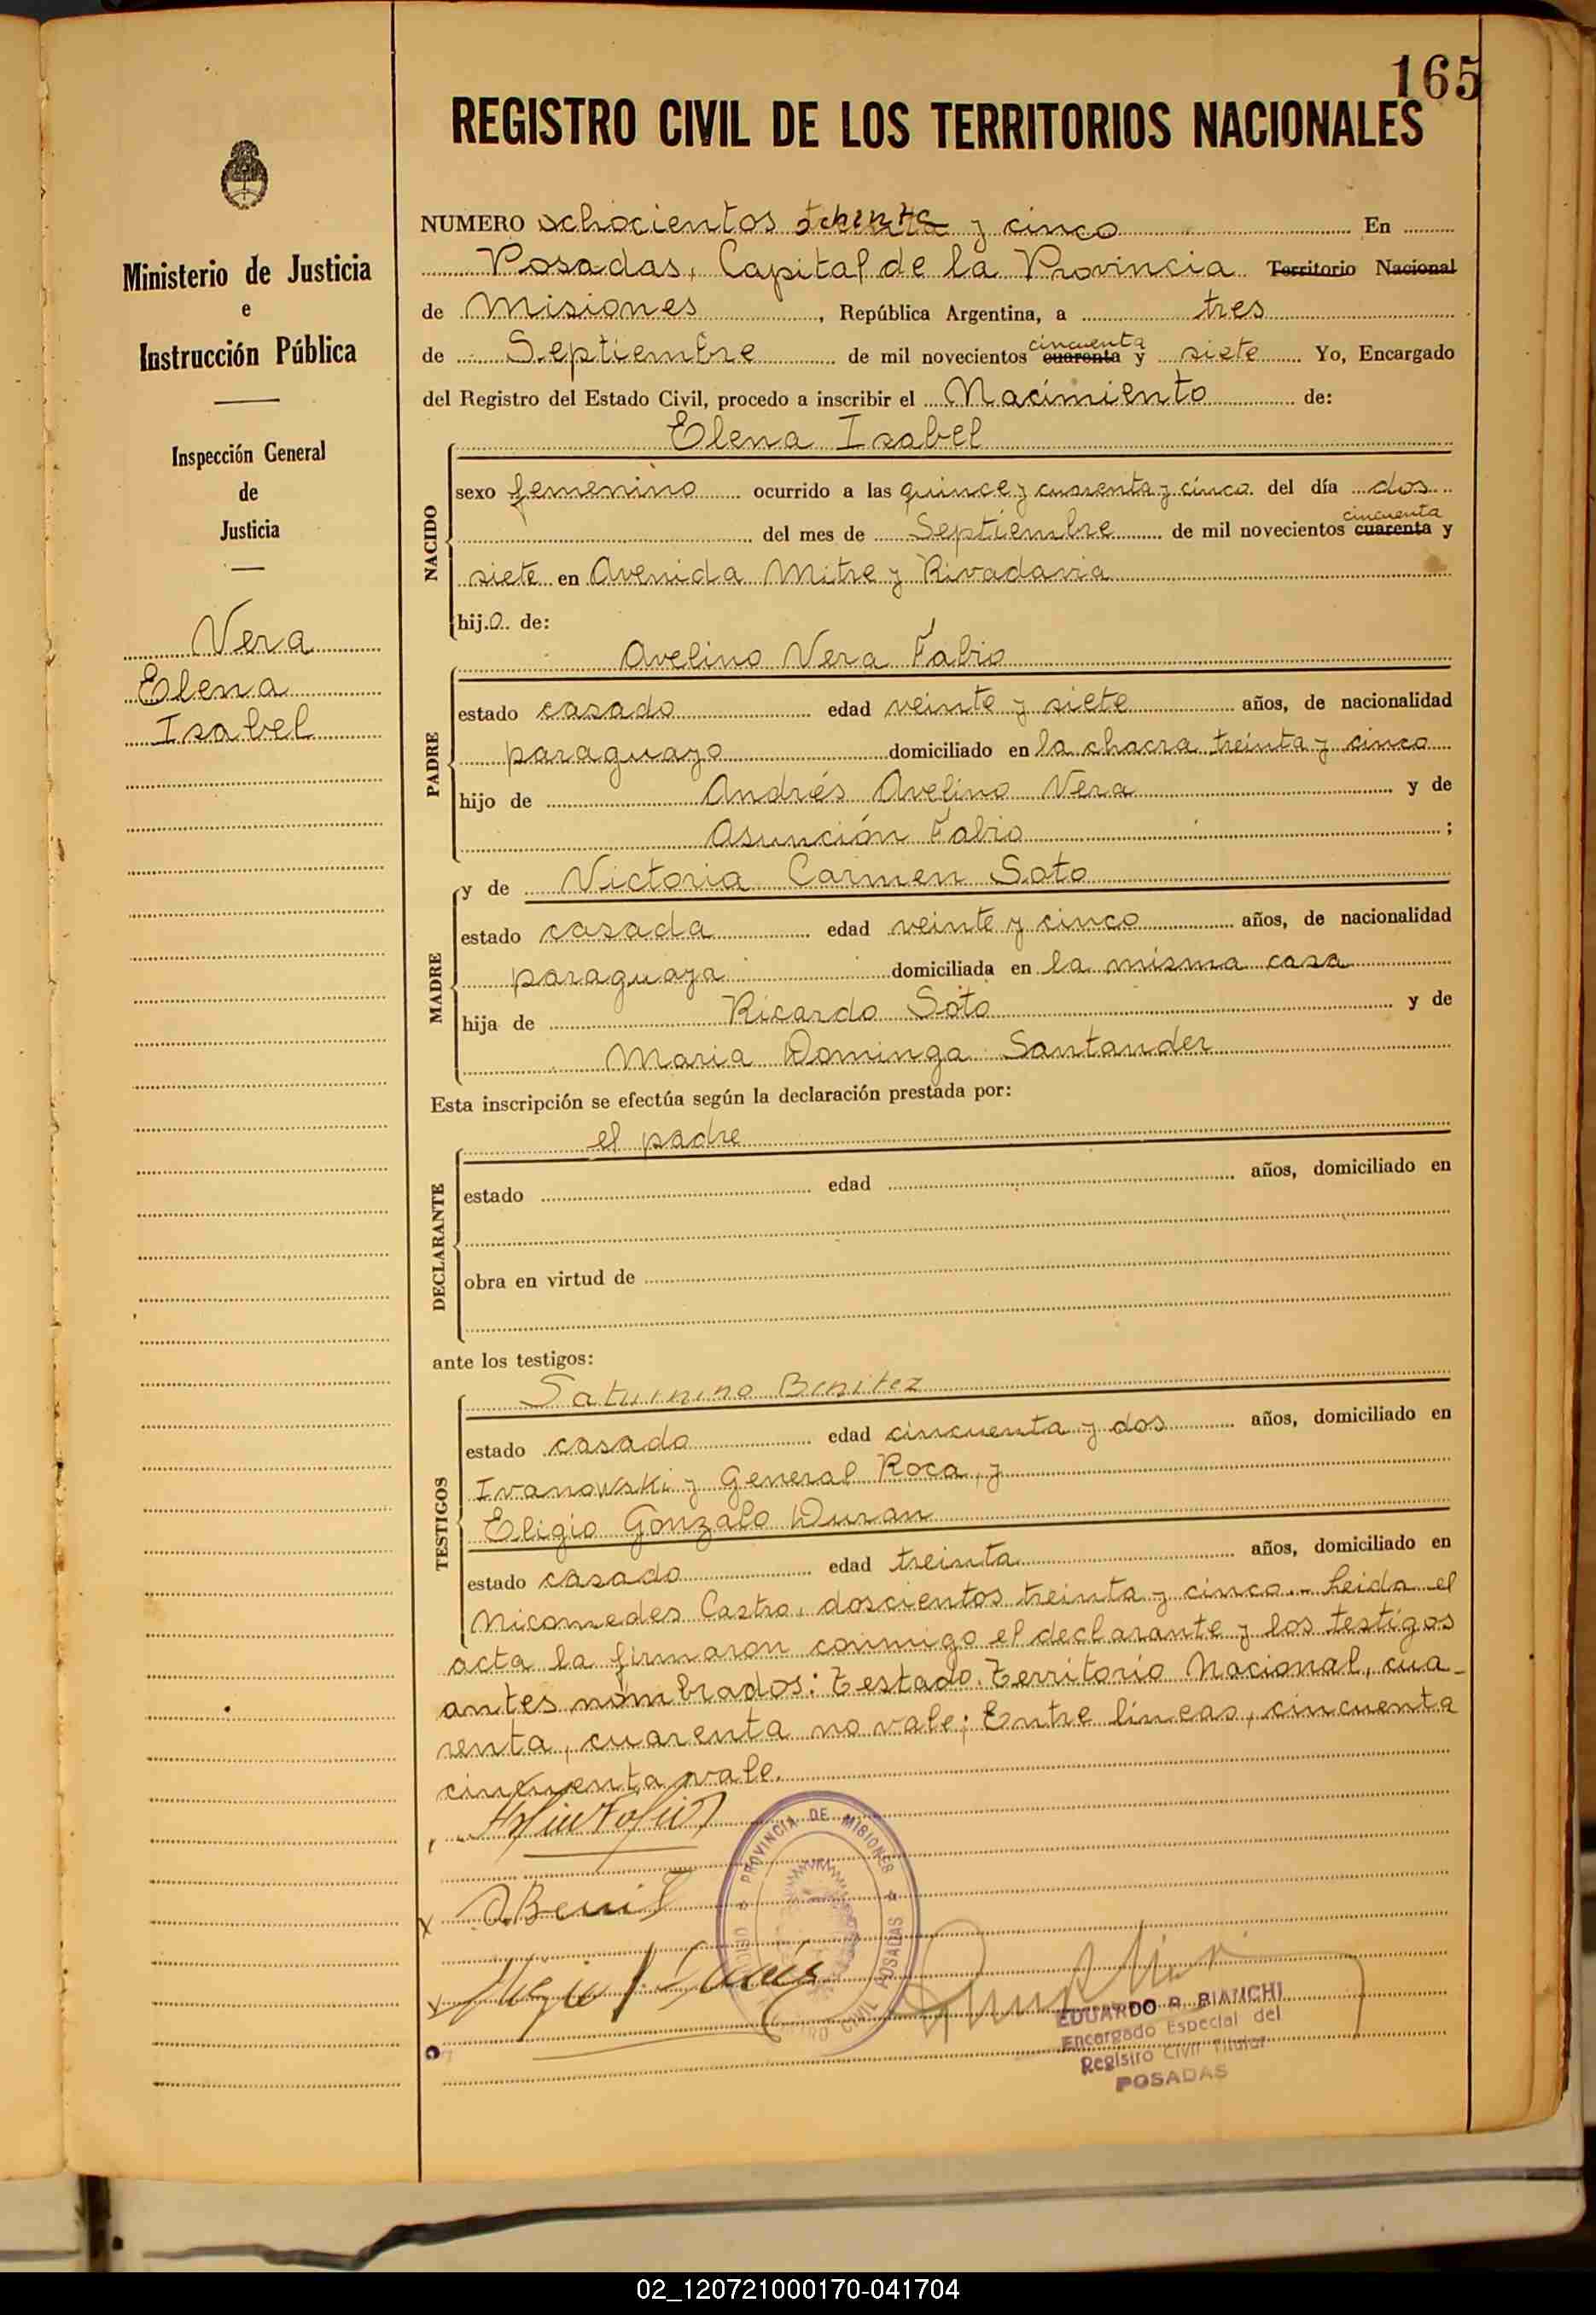 165
REGISTRO CIVIL DE LOS TERRITORIOS NACIONALES
Ministerio de Justicia
e
Instrucción Pública
Inspección General
de
Justicia
Vera
Elena
Isabel
NUMERO ochocientos y cinco En
Posadas, Capital de la Provincia Territorio Nacional
de Misiones, República Argentina, a tres
cincuenta
de Septiembre de mil novecientos cuarenta y siete Yo, Encargado
del Registro del Estado Civil, procedo a inscribir el Nacimiento de:
Elena Isabel
NACIDO
sexo femenino ocurrido a las quince y cuarenta y cinco del día dos
cincuenta
del mes de Septiembre de mil novecientos cuarenta y
siete en Avenida Mitre y Rivadavia
hij.a. de:
Avelino Vera Fabio
PADRE
estado casado edad veinte y siete años, de nacionalidad
paraguayo domiciliado en la chacra treinta y cinco
hijo de Andrés Avelino Vera y de
Asunción Fabio ;
MADRE
y de Victoria Carmen Soto
estado casada edad veinte y cinco años, de nacionalidad
paraguaya domiciliada en la misma casa
hija de Ricardo Soto y de
Maria Dominga Santander
Esta inscripción se efectúa según la declaración prestada por:
el padre
DECLARANTE
estado edad años, domiciliado en
obra en virtud de
ante los testigos:
Saturnino Benitez
TESTIGOS
estado casado edad cincuenta y dos años, domiciliado en
Ivanowski y General Roca, y
Eligio Gonzalo Duran
estado casado edad treinta años, domiciliado en
Nicomedes Castro, doscientos treinta y cinco.- Leida el
acta la firmaron conmigo el declarante y los testigos
antes nombrados: Testado. Territorio Nacional, cua-
renta, cuarenta no vale; Entre líneas, cincuenta
cincuenta vale.
PROVINCIA DE MISIONES
CIVIL POSADAS
EDUARDO R. BIANCHI
Encargado Especial del
Registro Civil Titular
POSADAS
02_120721000170-041704